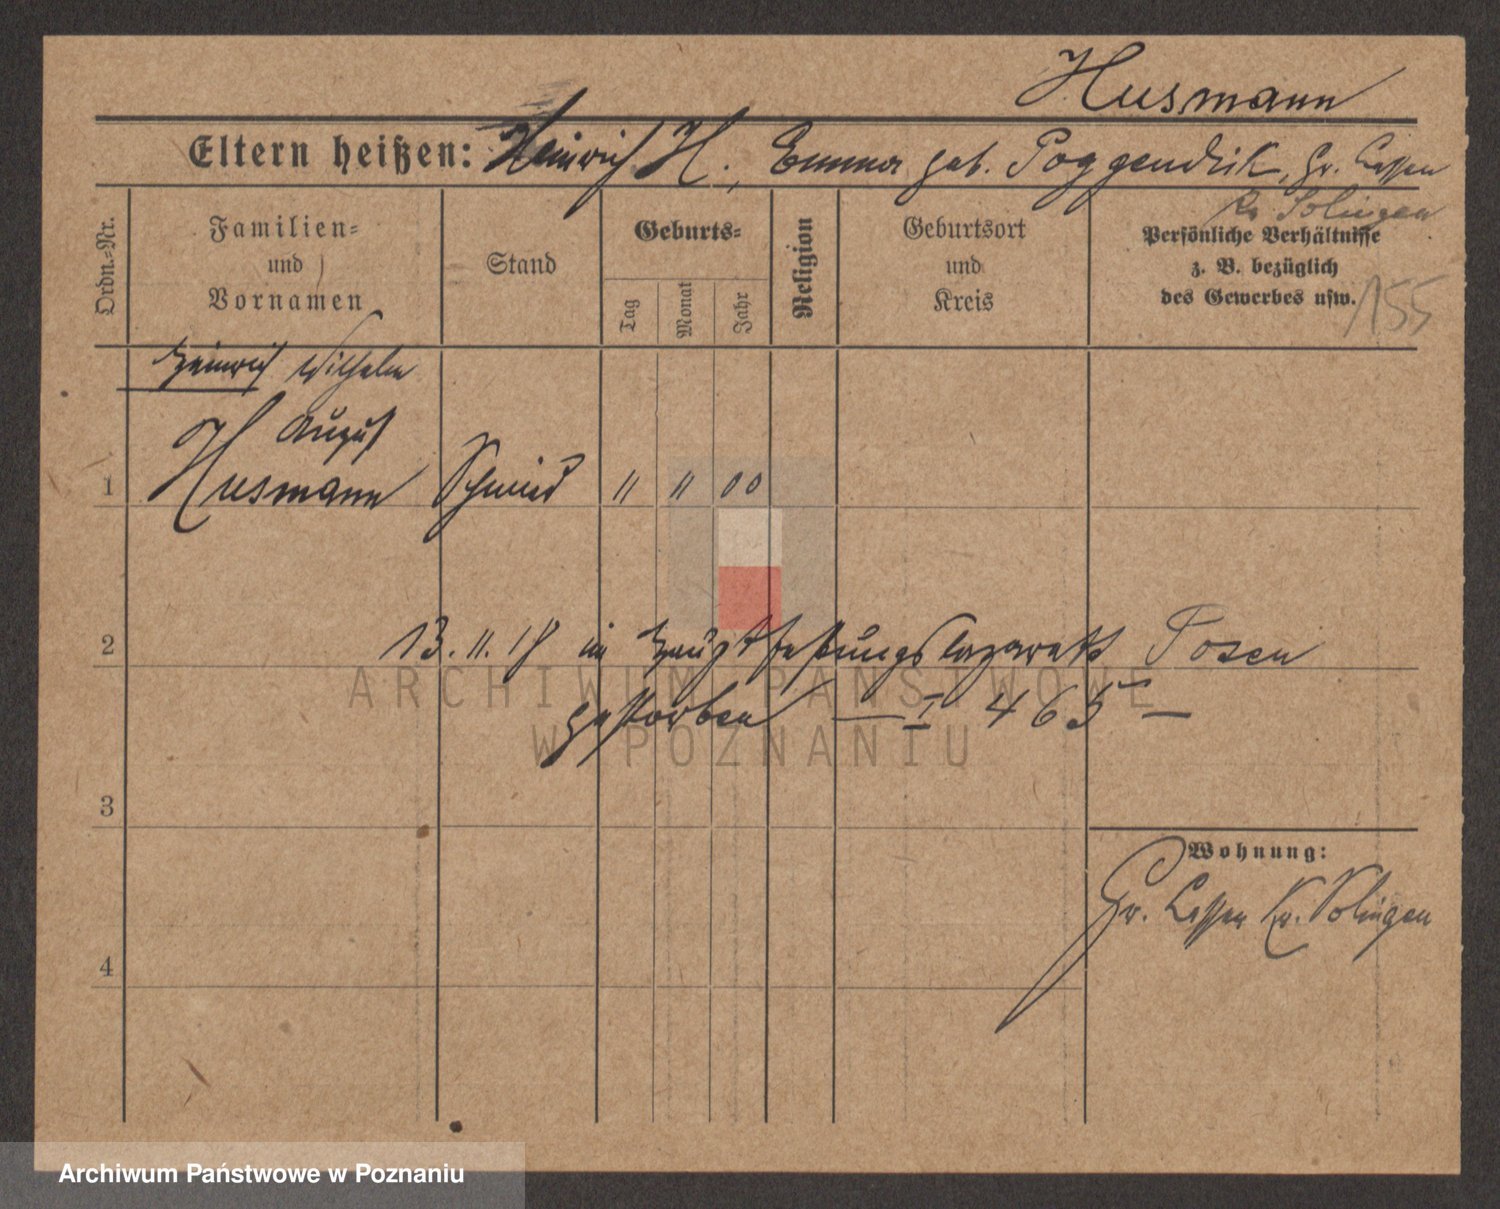 Husmann
Eltern heißen: Heinrich H., Emma geb. Poggendrik, Gr. Cassen
Kr. Solingen
Ordn.-Nr.
Familien-
und
Vornamen
Stand
Geburts-
Tag
Monat
Jahr
Religion
Geburtsort
und
Kreis
Persönliche Verhältnisse
z. B. bezüglich
des Gewerbes usw.
155
Heinrich Wilhelm
August
1 Husmann Schmied 11 11 00
2 13.11.18 im Hauptfestungslazarett Posen
gestorben — I 465 —
3
Wohnung:
Gr. Cassen Kr. Solingen
4
ARCHIWUM PAŃSTWOWE
W POZNANIU
Archiwum Państwowe w Poznaniu